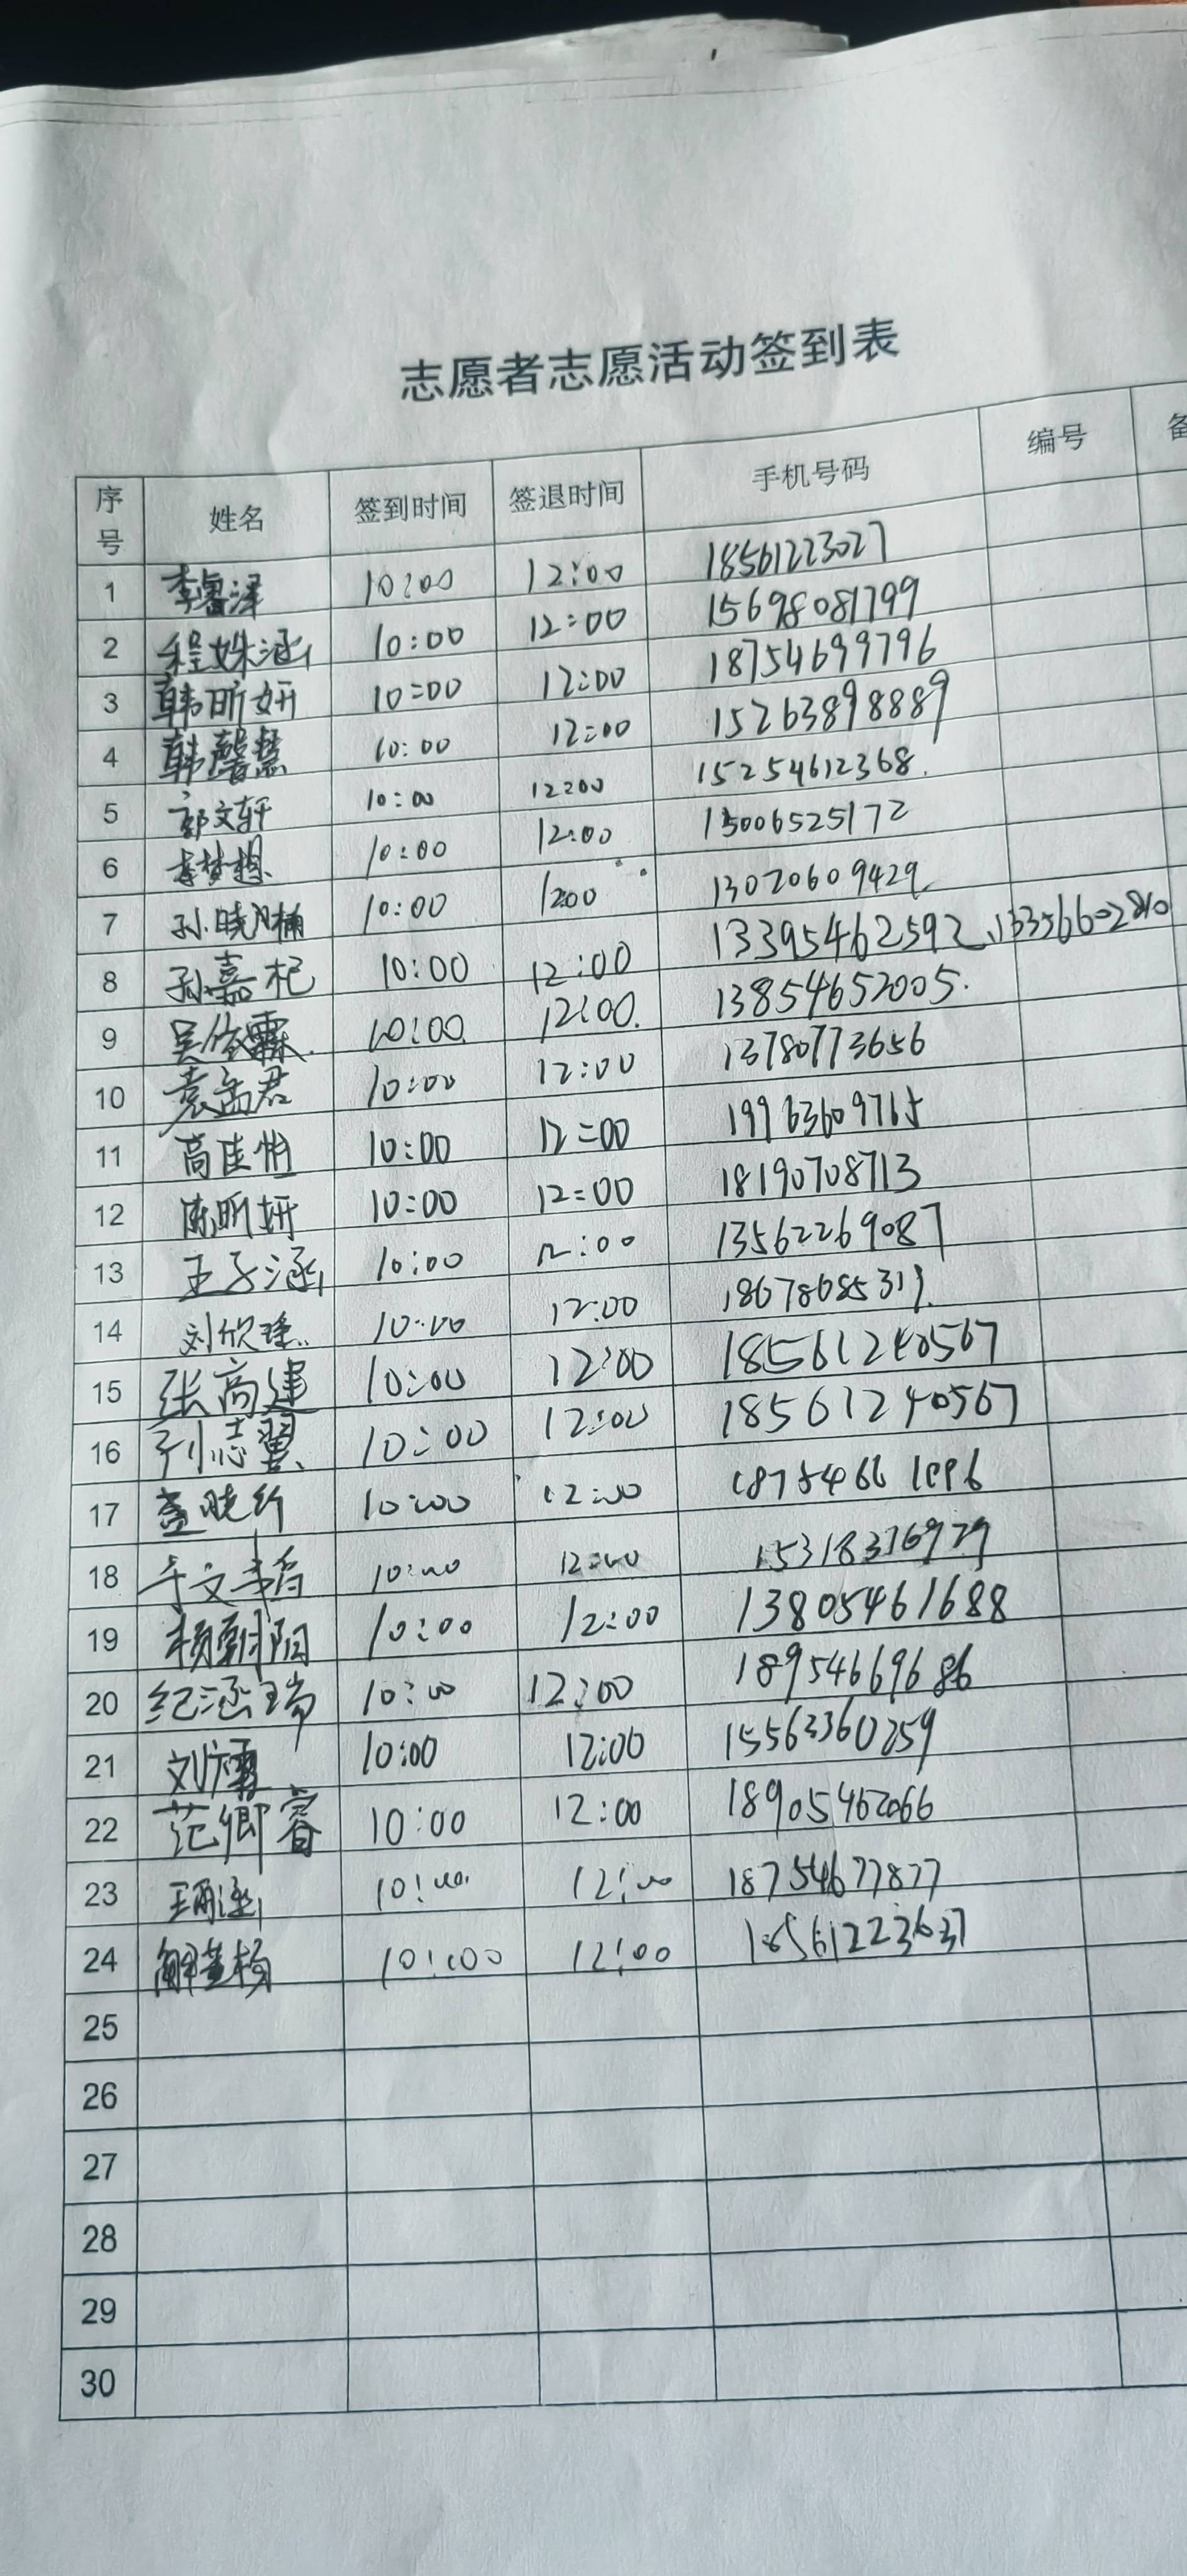 志愿者志愿活动签到表
序号 姓名 签到时间 签退时间 手机号码 编号 备
1 李睿泽 10:00 12:00 18561223027
2 程姝涵 10:00 12:00 15698081799
3 韩昕妍 10:00 12:00 18754699796
4 韩馨慧 10:00 12:00 15263898889
5 郭文轩 10:00 12:00 15254612368
6 李梦想 10:00 12:00 15006525172
7 孙晓楠 10:00 1200 13020609429
8 孙嘉杞 10:00 12:00 13395462592、
9 吴依霖 10:00 12:00 13854652005
10 袁孟君 10:00 12:00 13780773656
11 高佳怡 10:00 12:00 19963609765
12 陈昕妍 10:00 12:00 18190708713
13 王子涵 10:00 12:00 13562269087
14 刘欣瑶 10:00 12:00
15 张高建 10:00 12:00 18561240567
16 刘志翼 10:00 12:00 18561240567
17 10:00 12:00
18 10:00 12:00
19 杨朝阳 10:00 12:00 13805461688
20 纪涵瑞 10:00 12:00 18954669686
21 10:00 12:00 15563360259
22 范卿睿 10:00 12:00 18905462066
23 10:00 12:00 18754677877
24 10:00 12:00 18561223637
25
26
27
28
29
30